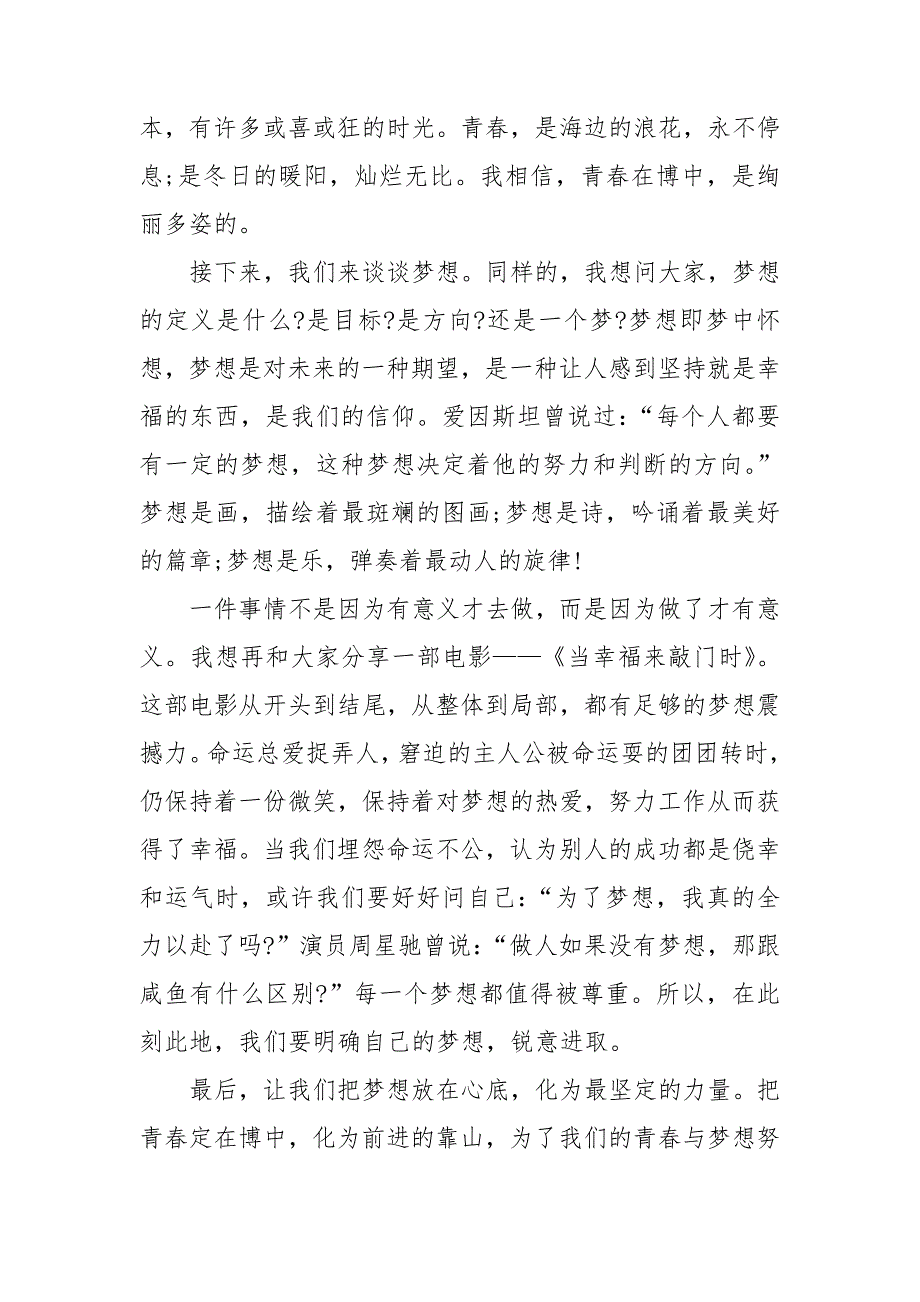 本，有许多或喜或狂的时光。青春，是海边的浪花，永不停
息;是冬日的暖阳，灿烂无比。我相信，青春在博中，是绚
丽多姿的。
接下来，我们来谈谈梦想。同样的，我想问大家，梦想
的定义是什么?是目标?是方向?还是一个梦?梦想即梦中怀
想，梦想是对未来的一种期望，是一种让人感到坚持就是幸
福的东西，是我们的信仰。爱因斯坦曾说过：“每个人都要
有一定的梦想，这种梦想决定着他的努力和判断的方向。”
梦想是画，描绘着最斑斓的图画;梦想是诗，吟诵着最美好
的篇章;梦想是乐，弹奏着最动人的旋律!
一件事情不是因为有意义才去做，而是因为做了才有意
义。我想再和大家分享一部电影——《当幸福来敲门时》。
这部电影从开头到结尾，从整体到局部，都有足够的梦想震
撼力。命运总爱捉弄人，窘迫的主人公被命运耍的团团转时，
仍保持着一份微笑，保持着对梦想的热爱，努力工作从而获
得了幸福。当我们埋怨命运不公，认为别人的成功都是侥幸
和运气时，或许我们要好好问自己：“为了梦想，我真的全
力以赴了吗?”演员周星驰曾说：“做人如果没有梦想，那跟
咸鱼有什么区别?”每一个梦想都值得被尊重。所以，在此
刻此地，我们要明确自己的梦想，锐意进取。
最后，让我们把梦想放在心底，化为最坚定的力量。把
青春定在博中，化为前进的靠山，为了我们的青春与梦想努